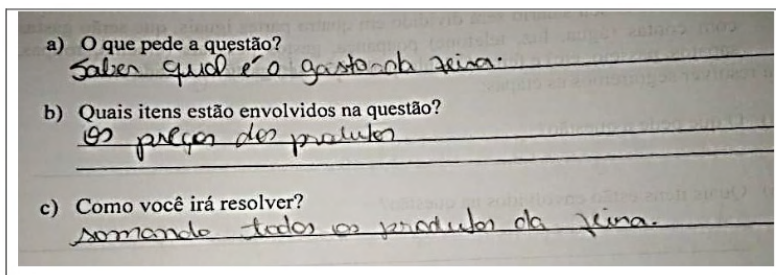 a) O que pede a questão?
Saber qual é o gasto na feira.
b) Quais itens estão envolvidos na questão?
Os preços dos produtos
c) Como você irá resolver?
somando todos os produtos da feira.